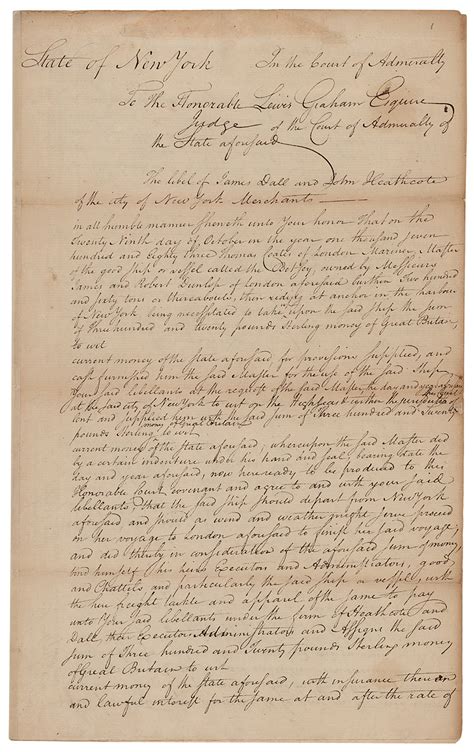 State of New York In the Court of Admiralty
To The Honorable Lewis Graham Esquire
Judge of the Court of Admiralty of
the State aforesaid
The libel of James Dall and John Heathcote
of the city of New York Merchants
in all humble manner Sheweth unto Your honor That on the
Twenty Ninth day of October in the year one thousand seven
hundred and eighty three Thomas Coates of London Mariner Master
of the good Ship or vessel called the Betsey, owned by Messieurs
James and Robert Dunlop of London aforesaid burthen Two hundred
and sixty tons or thereabouts, then riding at anchor in the harbour
of New York being necessitated to take upon the said Ship the sum
of Three hundred and twenty pounds Sterling money of Great Britain,
to wit
current money of the state aforesaid for provisions supplied, and
cash furnished him the said Master for the use of the said Ship
Your said libellants at the request of the said Master the day and year aforesaid
at the said city of New York to wit on the High seas & within the
lent and supplied him with the said sum of Three hundred and Twenty
pounds Sterling money of Great Britain to wit
current money of the state aforesaid, whereupon the said Master did
by a certain indenture under his hand and seal bearing date the
day and year aforesaid, now here ready to be produced to this
Honorable Court covenant and agree to and with your said
libellants that the said Ship should depart from New York
aforesaid and should as wind and weather might serve proceed
on her voyage to London aforesaid to finish her said voyage,
and did thereby in consideration of the aforesaid sum of money
bind himself his heirs Executors and Administrators, goods
and Chattels and particularly the said Ship or vessel, with
the her freight tackle and apparel of the same to pay
unto Your said libellants under the firm of Heathcote and
Dall their Executors Administrators and Assigns the said
sum of Three hundred and Twenty pounds Sterling money
of Great Britain to wit
current money of the state aforesaid, with insurance thereon
and lawful interest for the same at and after the rate of